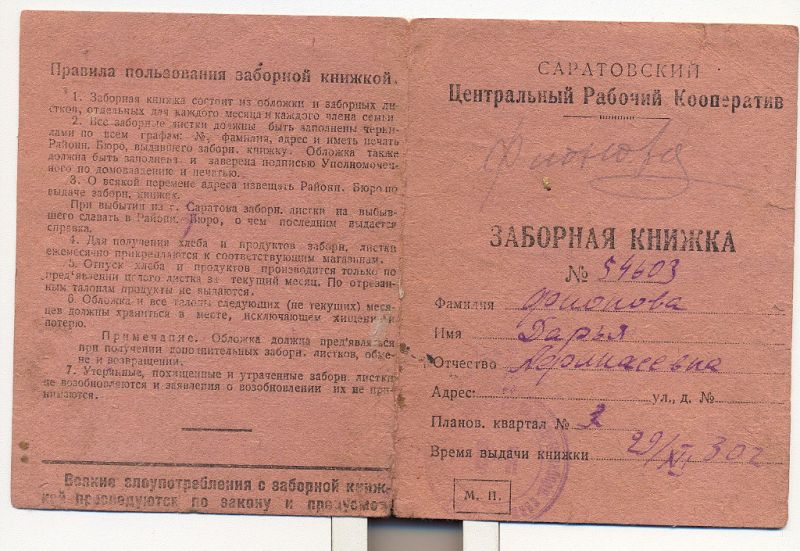 Правила пользования заборной книжкой.
1. Заборная книжка состоит из обложки и заборных ли-
стков, отдельных для каждого месяца и каждого члена семьи
2. Все заборные листки должны быть заполнены черни-
лами по всем графам: №, фамилия, адрес и иметь печать
Районн. Бюро, выдавшего заборн. книжку. Обложка также
должна быть заполнена и заверена подписью Уполномочен-
ного по домовладению и печатью.
3. О всякой перемене адреса извещать Районн. Бюро по
выдаче заборн. книжек.
При выбытии из г. Саратова заборн. листки на выбыв-
шего сдавать в Районн. Бюро, о чем последним выдается
справка.
4. Для получения хлеба и продуктов заборн. листки
ежемесячно прикрепляются к соответствующим магазинам.
5. Отпуск хлеба и продуктов производится только по
пред'явлении целого листка за текущий месяц. По отрезан-
ным талонам продукты не выдаются.
6. Обложка и все талоны следующих (не текущих) меся-
цев должны храниться в месте, исключающем хищение и
потерю.
Примечание. Обложка должна пред'являться
при получении дополнительных заборн. листков, обме-
не и возвращении.
7. Утерянные, похищенные и утраченные заборн. листки
не возобновляются и заявления о возобновлении их не при-
нимаются.
Всякие злоупотребления с заборной книж-
кой преследуются по закону и
САРАТОВСКИЙ
Центральный Рабочий Кооператив
Фионова
ЗАБОРНАЯ КНИЖКА
№ 54603
Фамилия Фионова
Имя Дарья
Отчество
Адрес: ул., д. №
Планов. квартал № 2
Время выдачи книжки 29/XII 30 г
М. П.